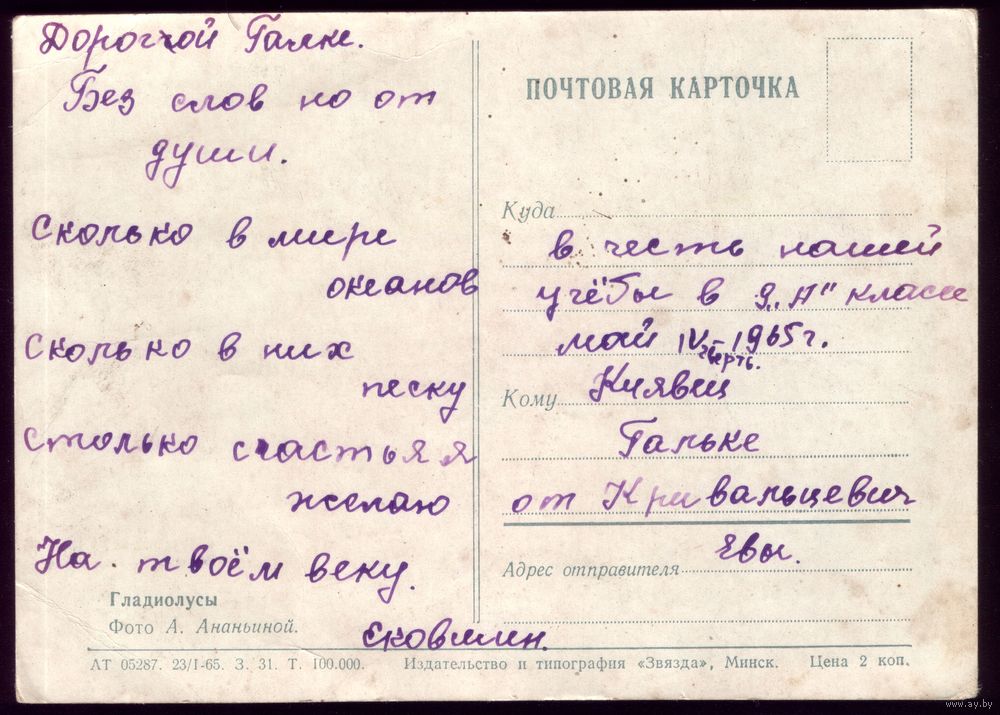 Дорогой Галке.
Без слов но от
души.
Сколько в мире
океанов
Сколько в них
песку
Столько счастья я
желаю
На твоём веку.
Гладиолусы
Фото А. Ананьиной.
АТ 05287. 23/I-65. З. 31. Т. 100.000.
ПОЧТОВАЯ КАРТОЧКА
Куда
в честь нашей
учёбы в 9 „А" классе
май IV 1965 г.
четверть.
Кому
Гальке
от Кривальцевич
Евы.
Адрес отправителя
Издательство и типография «Звязда», Минск. Цена 2 коп.
www.ay.by